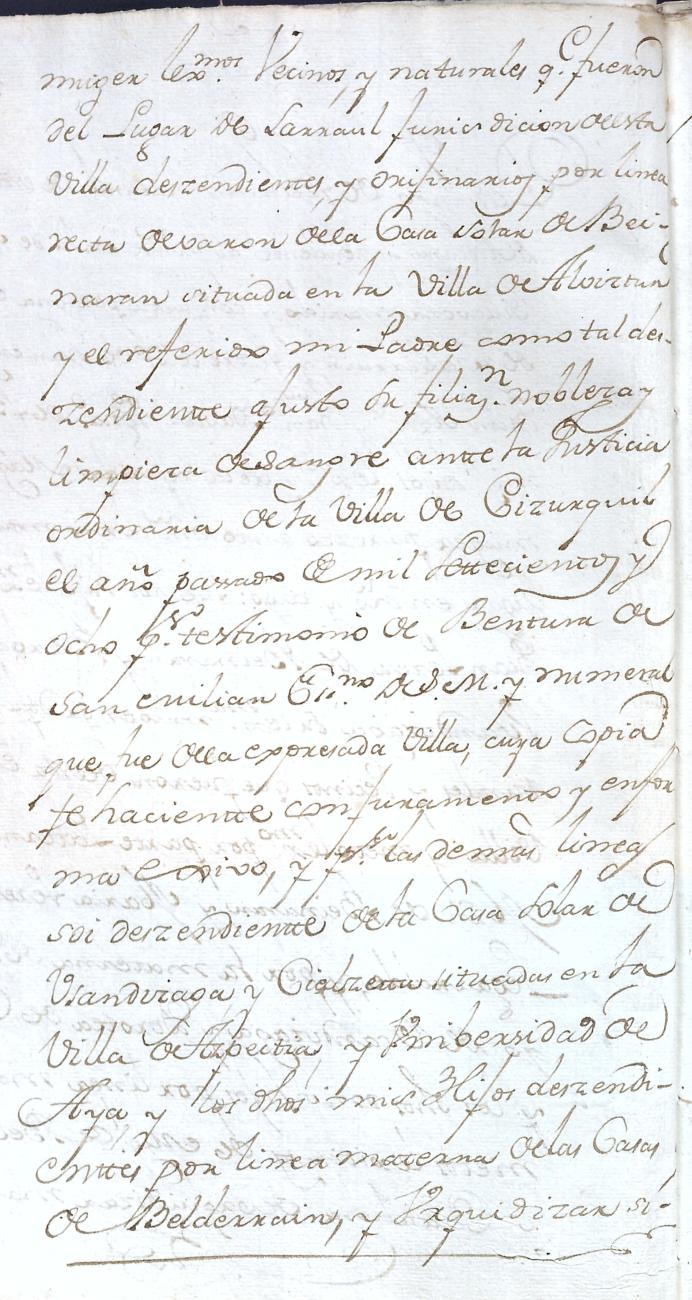 muger lexmos. Vecinos, y naturales q.e fueron
del Lugar de Larraul Jurisdicion de esta
Villa deszendientes, y orijinarios por linea
recta de varon de la Casa solar de Bei-
naran situada en la Villa de Alviztur
y el referido mi Padre como tal des-
zendiente ajusto su filiaz.n nobleza y
limpieza de Sangre ante la Justicia
ordinaria de la Villa de Cizurquil
el año passado de mil Settecientos y
ocho p.r testimonio de Bentura de
San Millian Ess.no de S. M. y numeral
que fue de la expresada Villa, cuya Copia
fe haciente con juramento y en for
ma exsivo, y p.r las demas lineas
soi deszendiente de la Casa Solar de
Vsandizaga y situadas en la
Villa de Azpeitia, y Vnibersidad de
Aya y los dhos mis Hijos deszendi-
enttes por linea materna de las Casas
de Belderrain, y Vrquidizar si-